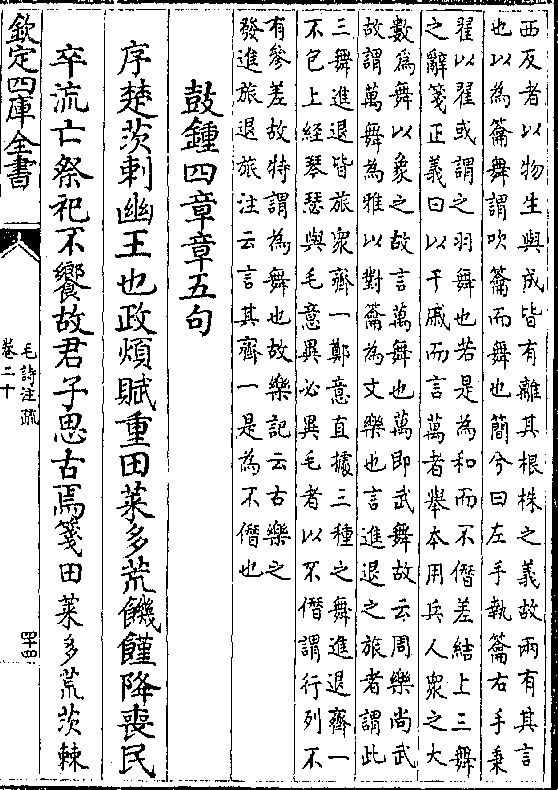 西反者以物生與成皆有離其根株之義故兩有其言
也以為籥舞謂吹籥而舞也簡兮曰左手執籥右手秉
翟以翟或謂之羽舞也若是為和而不僭差結上三舞
之辭箋正義曰以干戚而言萬者舉本用兵人衆之大
數為舞以象之故言萬舞也萬即武舞故云周樂尚武
故謂萬舞為雅以對籥為文樂也言進退之旅者謂此
三舞進退皆旅衆齊一鄭意直據三種之舞進退齊一
不包上經琴瑟與毛意異必異毛者以不僭謂行列不
有參差故特謂為舞也故樂記云古樂之
發進旅退旅注云言其齊一是為不僭也
鼓鍾四章章五句
序楚茨刺幽王也政煩賦重田萊多荒饑饉降喪民
卒流亡祭祀不饗故君子思古焉箋田萊多荒茨棘
欽定四庫全書
毛詩注疏
卷二十
四十四